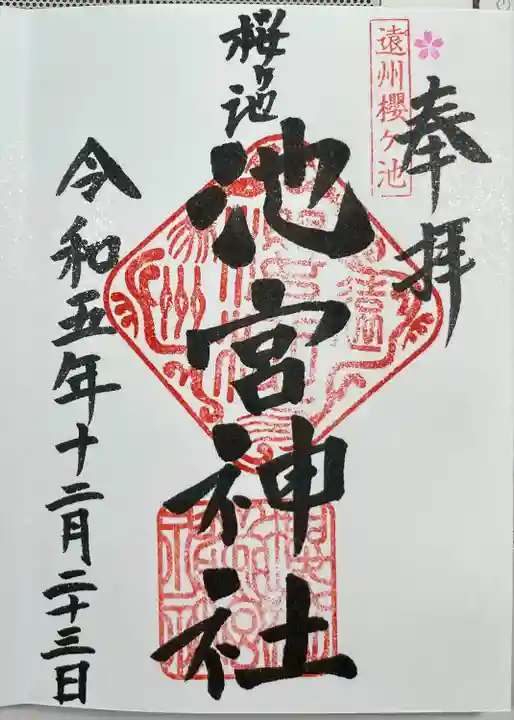 奉拝
遠州櫻ケ池
桜ヶ池
池宮神社
令和五年十二月二十三日